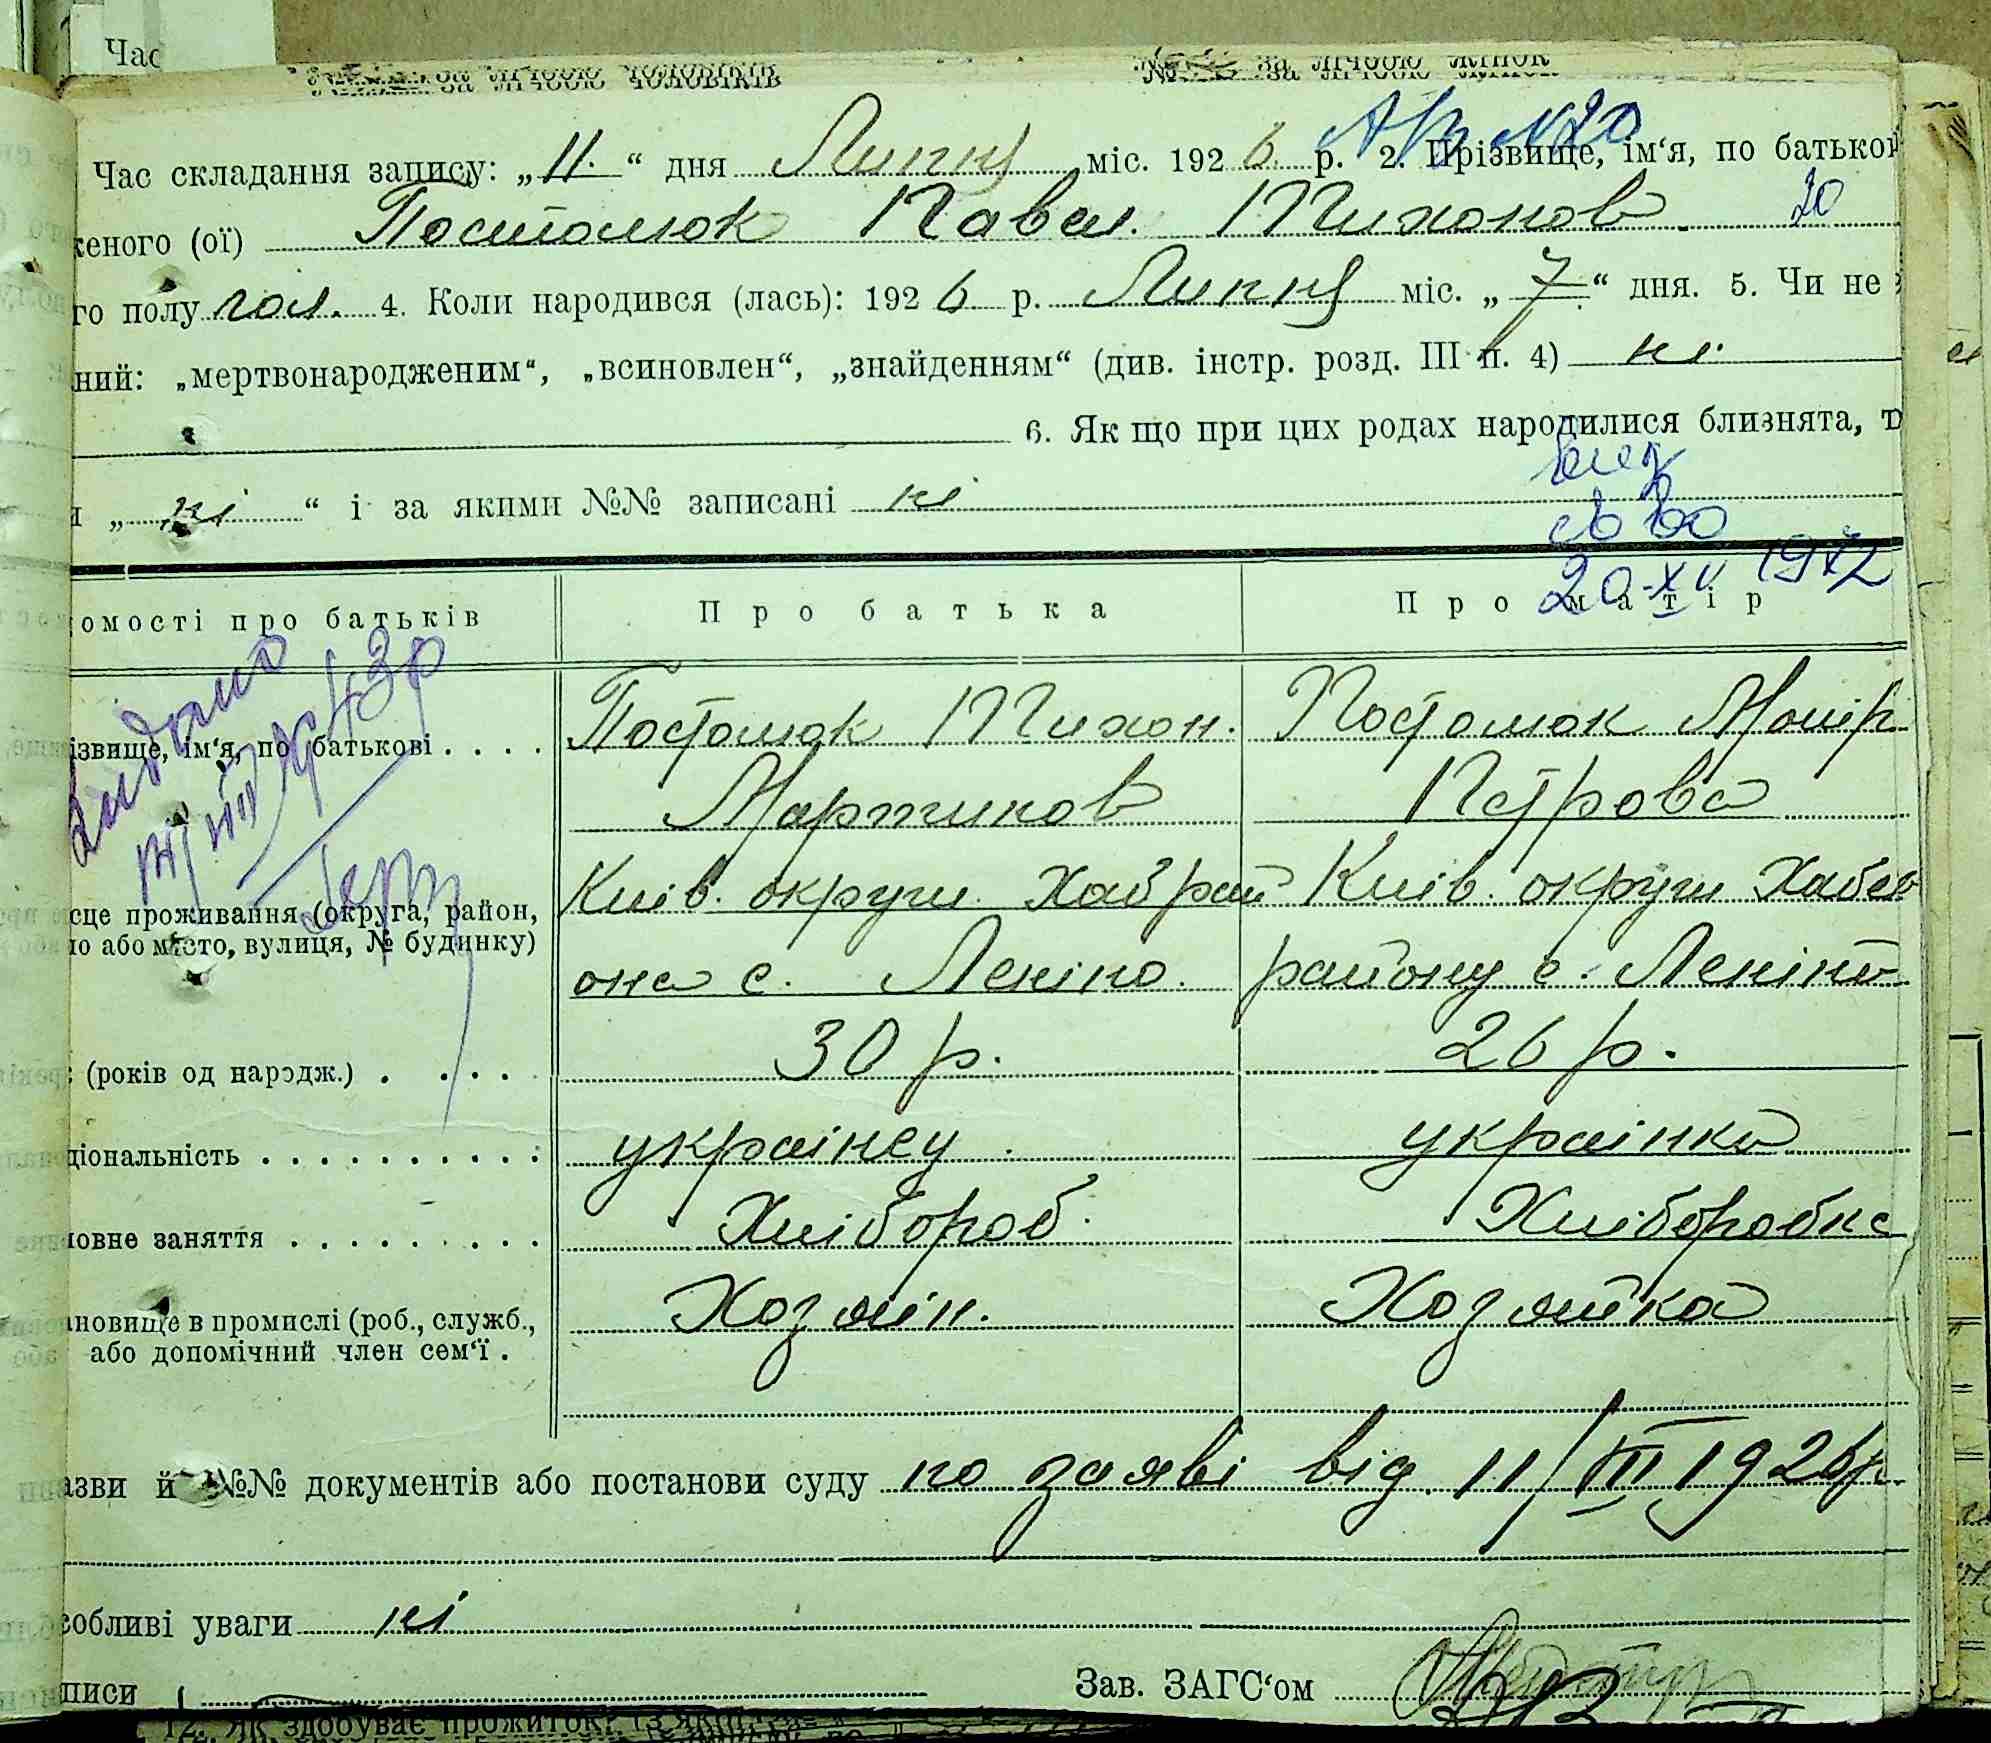 Час
за лічбою чоловіків
за лічбою жінок
№ 20
Час складання запису: „11.“ дня Липня міс. 1926. р. 2. Прізвище, ім‘я, по батькові
женого (ої) Постолюк Павел. Тихонов 20
го полу чол. 4. Коли народився (лась): 1926 р. Липня міс. „7.“ дня. 5. Чи не з
ний: „мертвонародженим“, „всиновлен“, „знайденням“ (див. інстр. розд. III п. 4) ні.
6. Як що при цих родах народилися близнята, т
я „ні“ і за якими №№ записані ні
св во
20 1972
омості про батьків
Про батька
Про матір
видано
43р
ізвище, ім‘я, по батькові . . . .
Постолюк Тихон.
Постолюк
Мартинов
Петрова
сце проживання (округа, район,
ло або місто, вулиця, № будинку)
Київ. округи Хаб рай
она с. Леніно.
Київ. округи Хабсв
району с. Леніно
(років од народж.) . . . . .
30 р.
26 р.
ціональність . . . . . . . . . .
українец
українка
ловне заняття . . . . . . . . .
Хлібороб.
Хліборобка
ановище в промислі (роб., служб.,
або допомічний член сем‘ї .
Хозяїн.
Хозяйка
азви й №№ документів або постанови суду по заяві від 11/VII 1926р.
собливі уваги ні
писи
Зав. ЗАГС‘ом
12. Як здобуває прожиток: